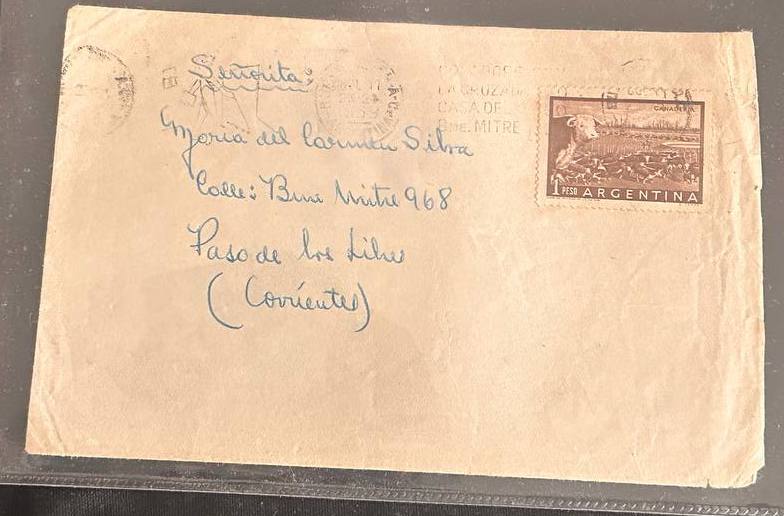 Señorita:
LA CRUZADA
CASA DE
Bme. MITRE
María del Carmen Silva
Calle: Bme Mitre 968
Paso de los Libres
(Corrientes)
GANADERIA
1 PESO ARGENTINA